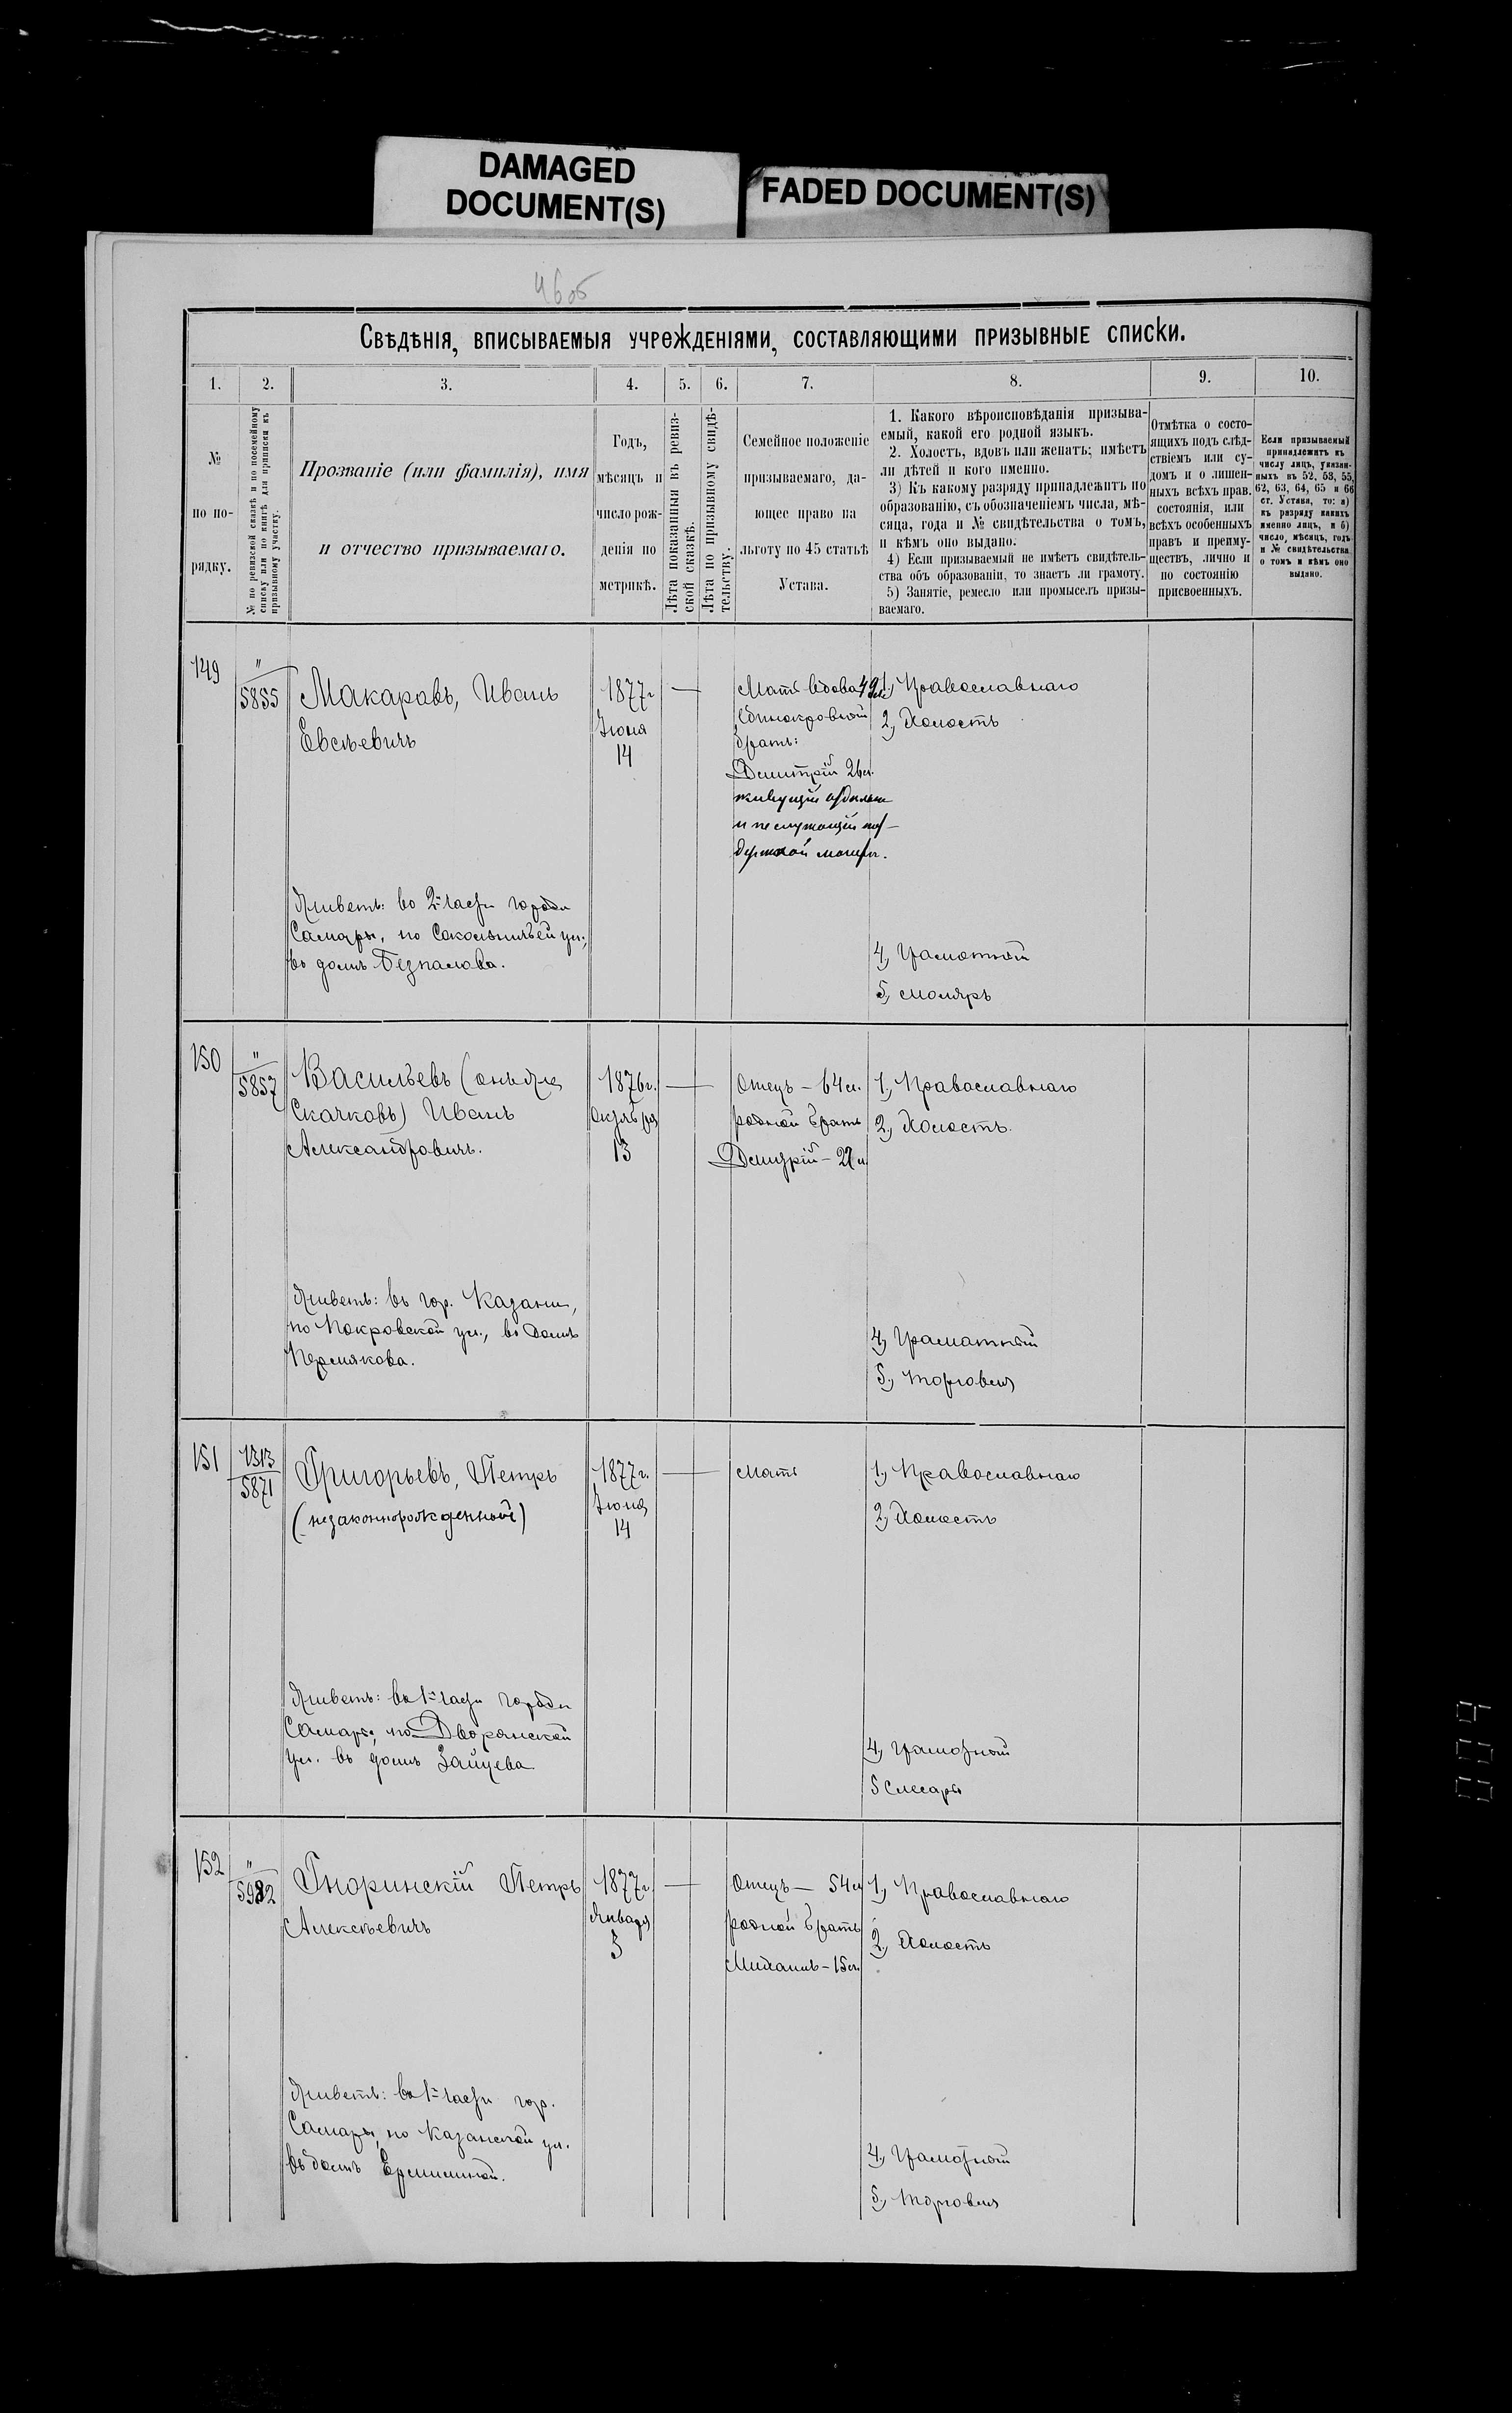 DAMAGED
DOCUMENT(S)
FADED DOCUMENT(S)
46об
Свѣдѣнія, вписываемыя учрежденіями, составляющими призывные списки.
1. 2. 3. 4. 5. 6. 7. 8. 9. 10.
№
по по-
рядку.
№ по ревизской сказкѣ и по посемейному
списку или по книгѣ для приписки къ
призывному участку.
Прозваніе (или фамилія), имя
и отчество призываемаго.
Годъ,
мѣсяцъ и
число рож-
денія по
метрикѣ.
Лѣта показанныя въ ревиз-
ской сказкѣ.
Лѣта по призывному свидѣ-
тельству.
Семейное положеніе
призываемаго, да-
ющее право на
льготу по 45 статьѣ
Устава.
1. Какого вѣроисповѣданія призыва-
емый, какой его родной языкъ.
2. Холостъ, вдовъ или женатъ; имѣетъ
ли дѣтей и кого именно.
3) Къ какому разряду принадлежитъ по
образованію, съ обозначеніемъ числа, мѣ-
сяца, года и № свидѣтельства о томъ,
и кѣмъ оно выдано.
4) Если призываемый не имѣетъ свидѣтель-
ства объ образованіи, то знаетъ ли грамоту.
5) Занятіе, ремесло или промыселъ призы-
ваемаго.
Отмѣтка о состо-
ящихъ подъ слѣд-
ствіемъ или су-
домъ и о лишен-
ныхъ всѣхъ прав.
состоянія, или
всѣхъ особенныхъ
правъ и преиму-
ществъ, лично и
по состоянію
присвоенныхъ.
Если призываемый
принадлежитъ къ
числу лицъ, указан-
ныхъ въ 52, 53, 55,
62, 63, 64, 65 и 66
ст. Устава, то: а)
къ разряду какихъ
именно лицъ, и б)
число, мѣсяцъ, годъ
и № свидѣтельства
о томъ и кѣмъ оно
выдано.
149
"
5855
Макаровъ, Иванъ
Евсѣевичъ
1877г
Іюня
14
—
Мать вдова 49 л.
Единокровный
братъ:
Дмитрій 26л.
живущій отдѣльно
и не служащій под-
держкой матери.
1, Православнаго
2, Холостъ
Живетъ: во 2й части города
Самары, по Сокольничьей ул.,
въ домѣ Безпалова.
4, Грамотный
5, Моляръ
150
"
5857
Васильевъ (онъ же
Скачковъ) Иванъ
Александровичъ.
1876г.
Октября
13
—
Отецъ – 64л.
родной братъ
Дмитрій – 22л
1, Православнаго
2, Холостъ.
Живетъ: въ гор. Казани,
по Покровской ул., въ домѣ
Пермякова.
4, Граматный
5, Торговля
151
1313
5871
Григорьевъ, Петръ
(незаконнорожденный)
1877г.
Іюня
14
—
Мать
1, Православнаго
2, Холостъ
Живетъ: въ 1й части города
Самары, по Дворянской
ул. въ домѣ Зайцева
4, Грамотный
5 Слесарь
152
"
5982
Гноринскій Петръ
Алексѣевичъ
1877г
Января
3
—
Отецъ – 54л
родной братъ
Михаилъ – 15л.
1, Православнаго
2, Холостъ
Живетъ: въ 1й части гор.
Самары, по Казанской ул.
въ домѣ
4, Грамотный
5, Торговля
004